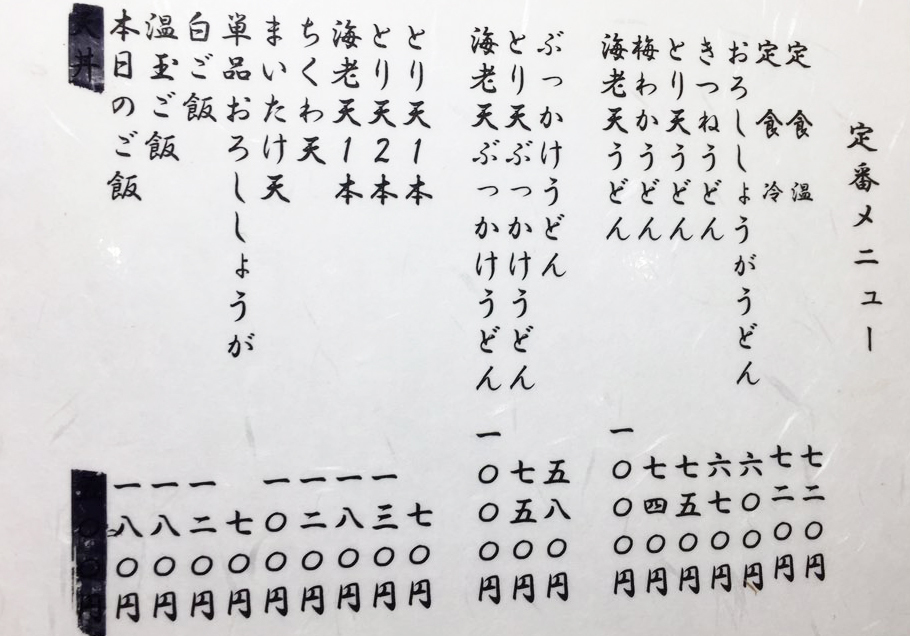 定番メニュー
定食 温 七二〇円
定食 冷 七二〇円
おろししょうがうどん 六〇〇円
きつねうどん 六七〇円
とり天うどん 七五〇円
梅わかうどん 七四〇円
海老天うどん 一〇〇〇円
ぶっかけうどん 五八〇円
とり天ぶっかけうどん 七五〇円
海老天ぶっかけうどん 一〇〇〇円
とり天1本 七〇円
とり天2本 一三〇円
海老天1本 一八〇円
ちくわ天 一二〇円
まいたけ天 一〇〇円
単品おろししょうが 七〇円
白ご飯 一二〇円
温玉ご飯 一八〇円
本日のご飯 一八〇円
天丼